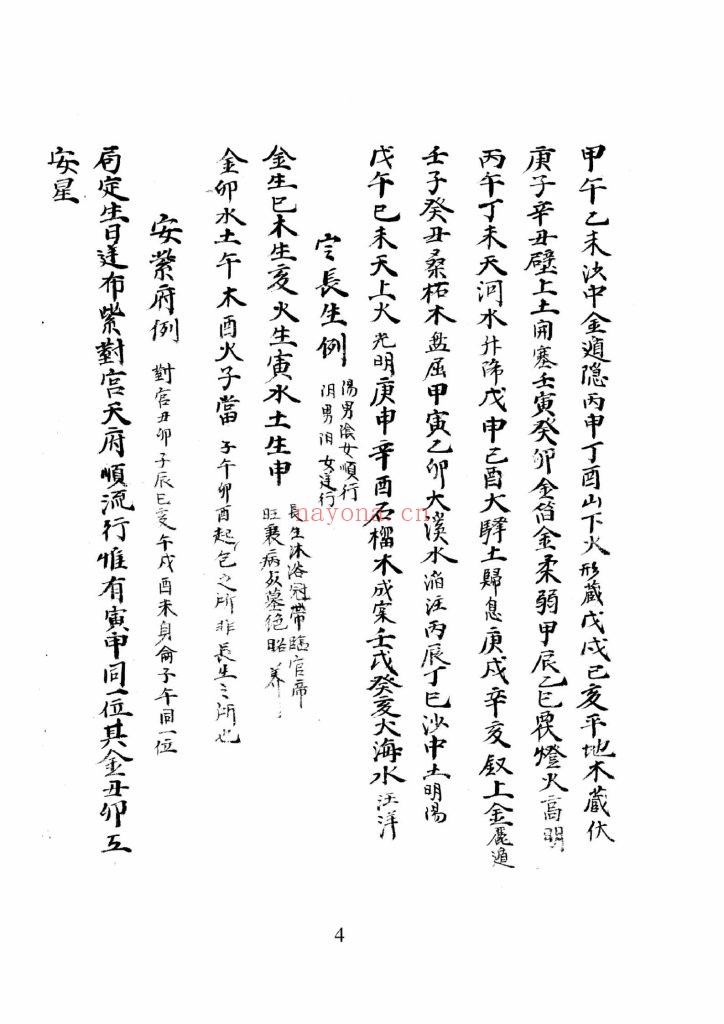 甲午乙未沙中金遁隐丙申丁酉山下火形藏戊戌己亥平地木藏伏
庚子辛丑壁上土開塞壬寅癸卯金笛金柔弱甲辰乙巳覆燈火高明
丙午丁未天河水升降戊申己酉大驛土歸息庚戌辛亥釵上金麗遁
壬子癸丑桑柘木盘屈甲寅乙卯大溪水滔注丙辰丁巳沙中土明陽
戊午巳未天上火光明庚申辛酉石榴木成寔壬戌癸亥大海水汪洋
定長生例
陽男陰女順行
阴男阳女逆行
金生巳木生亥火生寅水土生申
長生沐浴冠帶臨官帝
旺衰病死墓绝胎养
金卯水土午木酉火子當
子午卯酉起包之所非長生之所也
安紫府例
對宫丑卯子辰巳亥午戌酉未身命子午同一位
局定生日逆布紫對宫天府順流行惟有寅申同一位其金丑卯互
安星
nayona.cn
4